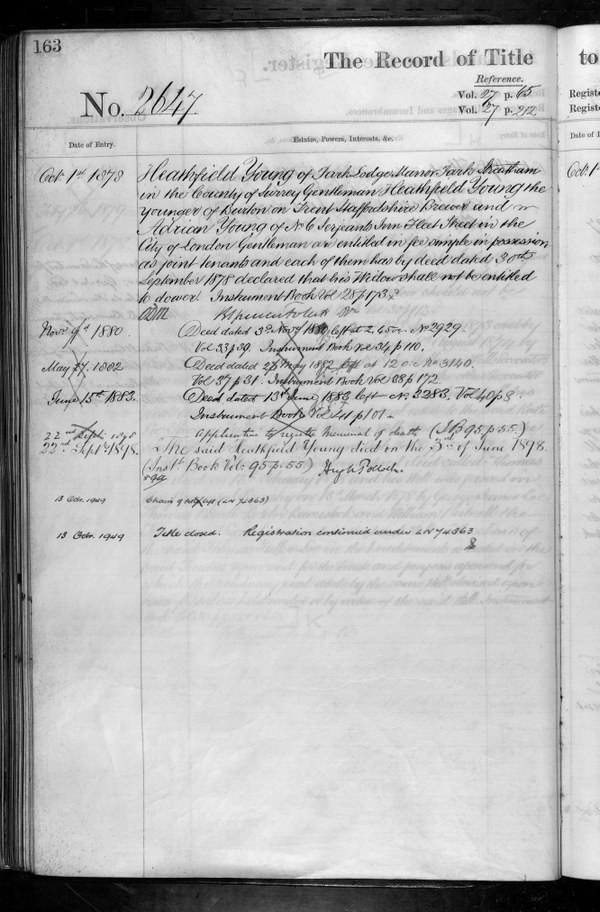 163
The Record of Title
to
Reference.
No. 2647
Vol. 27 p. 65
Vol. 27 p. 212
Registe
Registe
Date of Entry.
Estates, Powers, Interests, &c.
Date of E
Oct. 1st 1878
Heathfield Young of Park Lodge Manor Park Streatham
in the County of Surrey Gentleman Heathfield Young the
younger of Burton on Trent Staffordshire Brewer and
Adrian Young of No 6 Serjeants Inn Fleet Street in the
City of London Gentleman are entitled in fee simple in possession
as joint tenants and each of them has by deed dated 30th
September 1878 declared that his Widow shall not be entitled
to dower Instrument Book Vol 28 p 173
Oct. 1
Novr 9th 1880.
Deed dated 3rd Novr 1880 left at 2.45 No 2929
Vol 33 p 39. Instrument Book Vol 34 p 110.
May 27. 1882
Deed dated May 1882 left at 12 o.c No 3140.
Vol 37 p 31. Instrument Book Vol 38 p 172
June 15th 1883.
Deed dated 13th June 1883 left No 3283. Vol 40 p 8
Instrument Book Vol 41 p 101
22 Septr 1898
Application to register Memorial of death (I B 95 p. 55)
22nd Septr 1898.
The said Heathfield Young died on the 3rd of June 1898.
(Inst Book Vol: 95 p. 55) Hugh Pollock.
13 Octr. 1949
Change of left (LN 74363)
13 Octr. 1949
Title closed. Registration continued under LN 74363